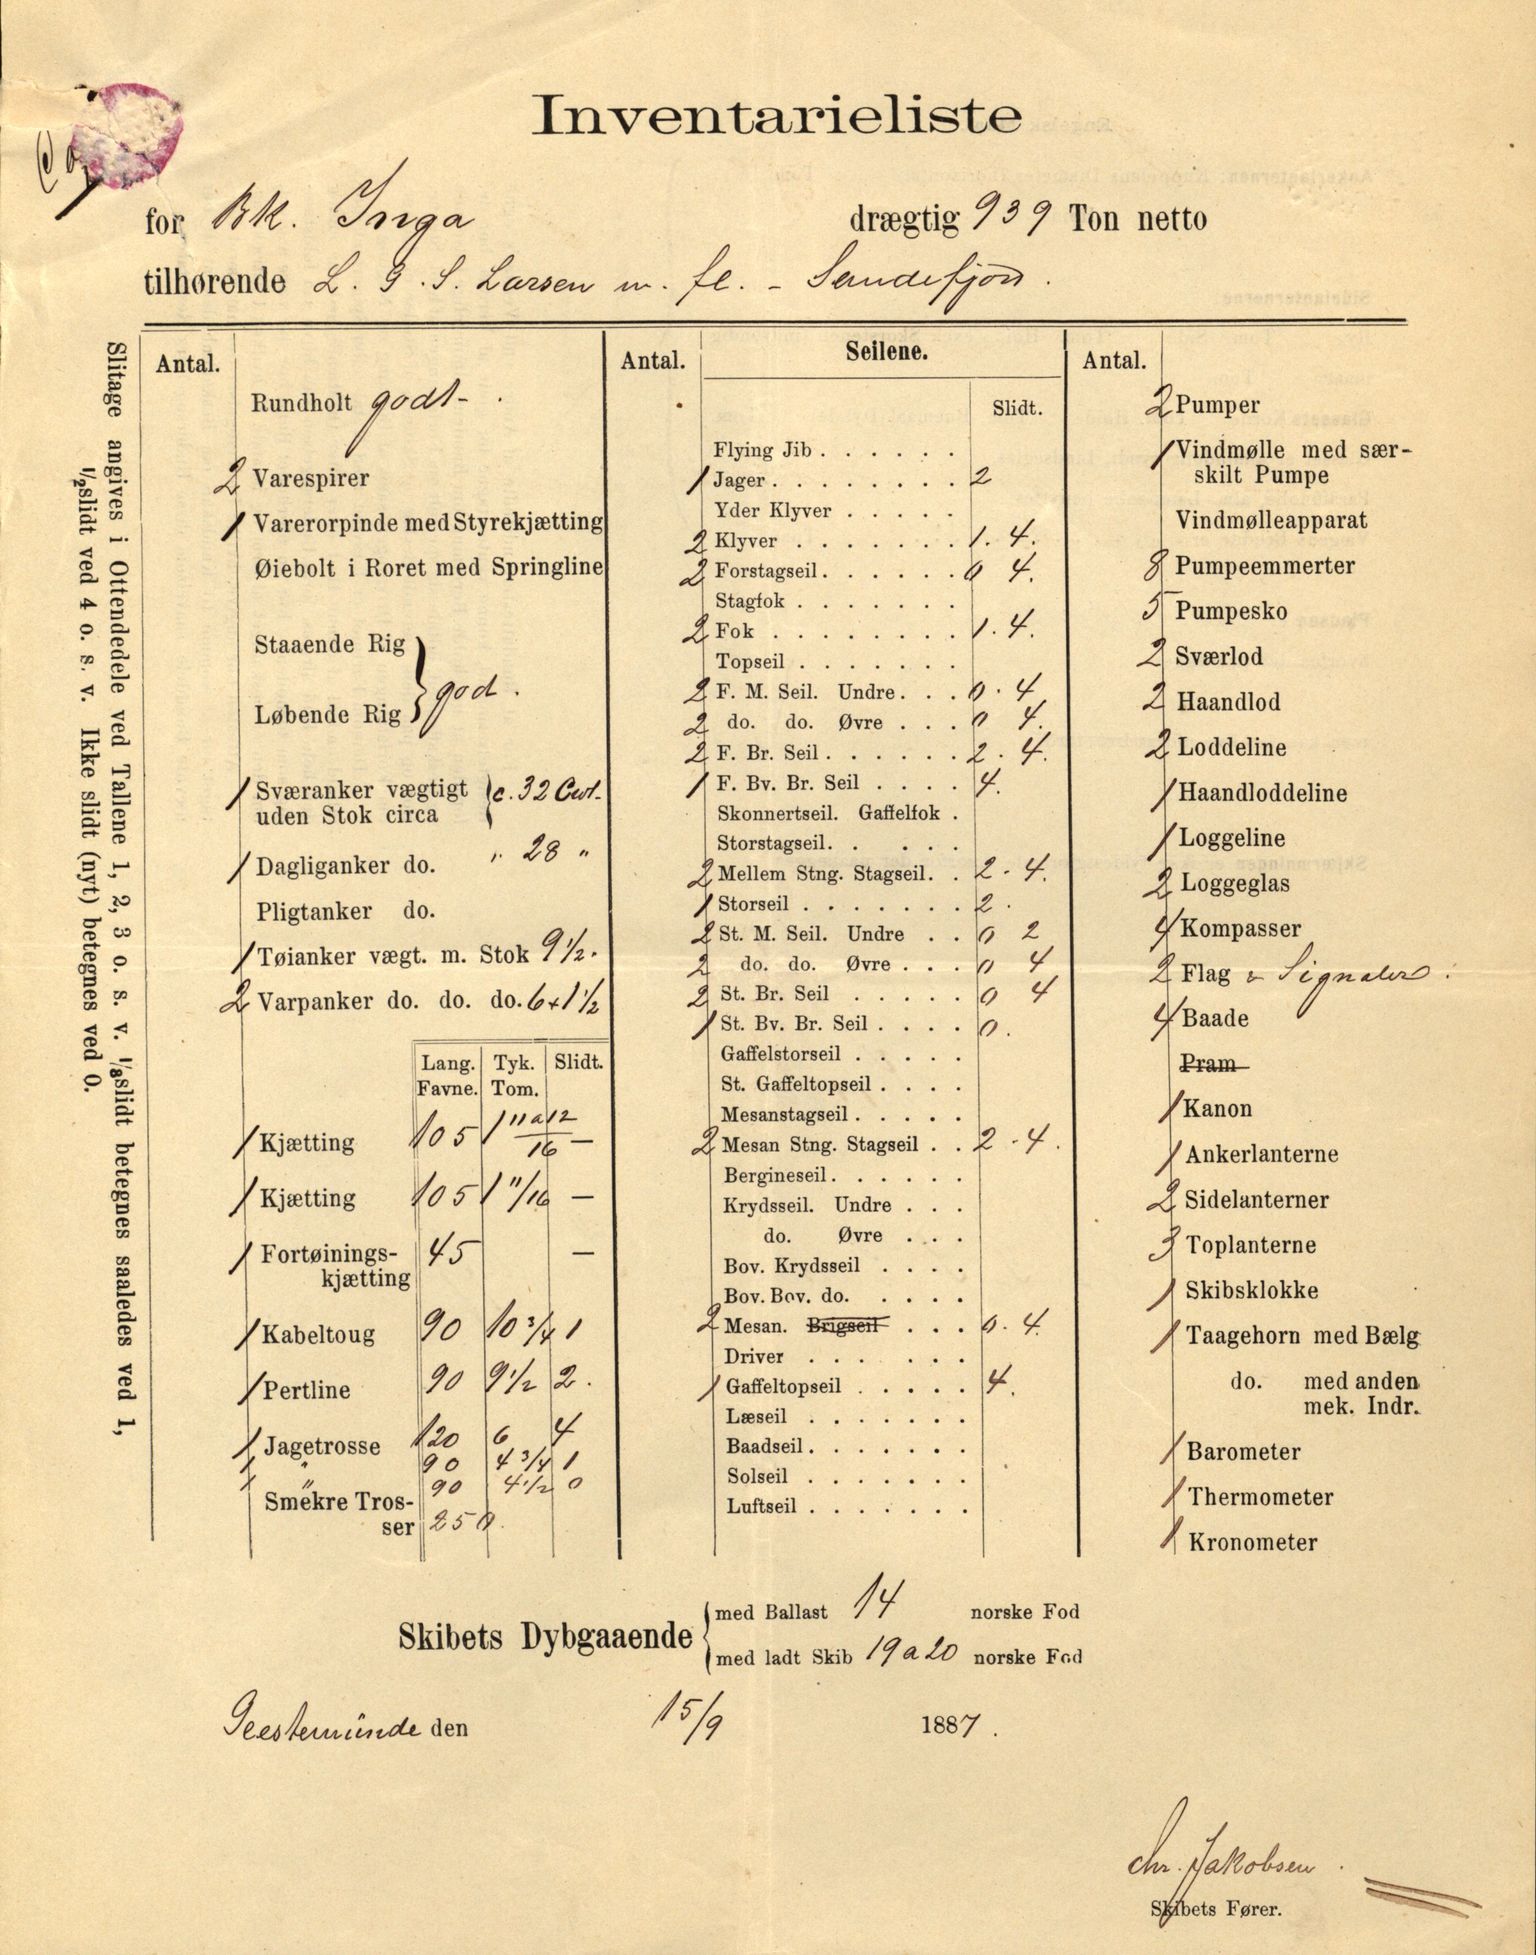 Inventarieliste
for Bk. Inga drægtig 939 Ton netto
tilhørende L. G. S. Larsen m. fl. - Sandefjord.
Slitage angives i Ottendedele ved Tallene 1, 2, 3 o. s. v. 1/8 slidt betegnes saaledes ved 1,
1/2 slidt ved 4 o. s. v. Ikke slidt (nyt) betegnes ved 0.
Antal.
Rundholt godt-
2 Varespirer
1 Varerorpinde med Styrekjætting
Øiebolt i Roret med Springline
Staaende Rig
Løbende Rig } god.
1 Sværanker vægtigt { c. 32 Cwt.
uden Stok circa
1 Dagliganker do. " 28 "
Pligtanker do.
1 Tøianker vægt. m. Stok 9 1/2.
2 Varpanker do. do. do. 6 + 1 1/2
Lang. Tyk. Slidt.
Favne. Tom.
1 Kjætting 105 1 11 a 12/16 —
1 Kjætting 105 1 11/16 —
1 Fortøinings- 45 —
kjætting
1 Kabeltoug 90 10 3/4 1
1 Pertline 90 9 1/2 2.
1 Jagetrosse 120 6 4
1 " 90 4 3/4 1
1 " 90 4 1/2 0
Smekre Tros-
ser 250.
Antal. Seilene.
Slidt.
Flying Jib . . . . . .
1 Jager . . . . . . . . 2
Yder Klyver . . . . .
2 Klyver . . . . . . . 1. 4.
2 Forstagseil . . . . . . 0 4.
Stagfok . . . . . . .
2 Fok . . . . . . . . 1. 4.
Topseil . . . . . . .
2 F. M. Seil. Undre . . . 0. 4
2 do. do. Øvre . . . 0 4.
2 F. Br. Seil . . . . . . 2. 4.
1 F. Bv. Br. Seil . . . . 4.
Skonnertseil. Gaffelfok .
Storstagseil . . . . .
2 Mellem Stng. Stagseil . . 2. 4.
1 Storseil . . . . . . . 2.
2 St. M. Seil. Undre . . 0 2
2 do. do. Øvre . . . 0 4
2 St. Br. Seil . . . . . 0 4
1 St. Bv. Br. Seil . . . . 0.
Gaffelstorseil . . . . .
St. Gaffeltopseil . . . .
Mesanstagseil . . . . .
2 Mesan Stng. Stagseil . . 2. 4.
Bergineseil . . . . . .
Krydsseil. Undre . . .
do. Øvre . . .
Bov. Krydsseil . . . .
Bov. Bov. do. . . . .
2 Mesan. Brigseil . . . 0. 4.
Driver . . . . . .
1 Gaffeltopseil . . . . . 4.
Læseil . . . . . . .
Baadseil . . . . . . .
Solseil . . . . . . .
Luftseil . . . . . . .
Antal.
2 Pumper
1 Vindmølle med sær-
skilt Pumpe
Vindmølleapparat
8 Pumpeemmerter
5 Pumpesko
2 Sværlod
2 Haandlod
2 Loddeline
1 Haandloddeline
1 Loggeline
2 Loggeglas
4 Kompasser
2 Flag & Signaler.
4 Baade
Pram
1 Kanon
1 Ankerlanterne
2 Sidelanterner
3 Toplanterne
1 Skibsklokke
1 Taagehorn med Bælg
do. med anden
mek. Indr.
1 Barometer
1 Thermometer
1 Kronometer
Skibets Dybgaaende { med Ballast 14 norske Fod
med ladt Skib 19 a 20 norske Fod
Geestemünde den 15/9 1887.
Chr. Jakobsen.
Skibets Fører.